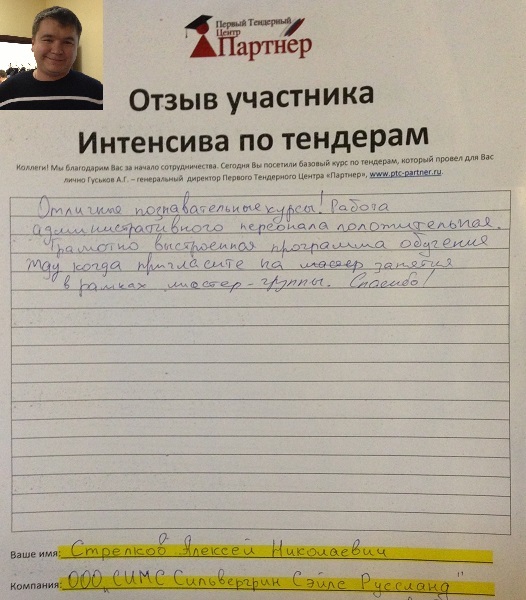 Первый Тендерный
Центр
Партнер
Отзыв участника
Интенсива по тендерам
Коллеги! Мы благодарим Вас за начало сотрудничества. Сегодня Вы посетили базовый курс по тендерам, который провел для Вас
лично Гуськов А.Г. – генеральный директор Первого Тендерного Центра «Партнер», www.ptc-partner.ru.
Отличные познавательные курсы! Работа
административного персонала положительная.
Грамотно выстроенная программа обучения
Жду когда пригласите на мастер занятия
в рамках мастер-группы. Спасибо!
Ваше имя: Стрелков Алексей Николаевич
Компания: ООО "СИМС Сильвергрин Сэйлс Руссланд"